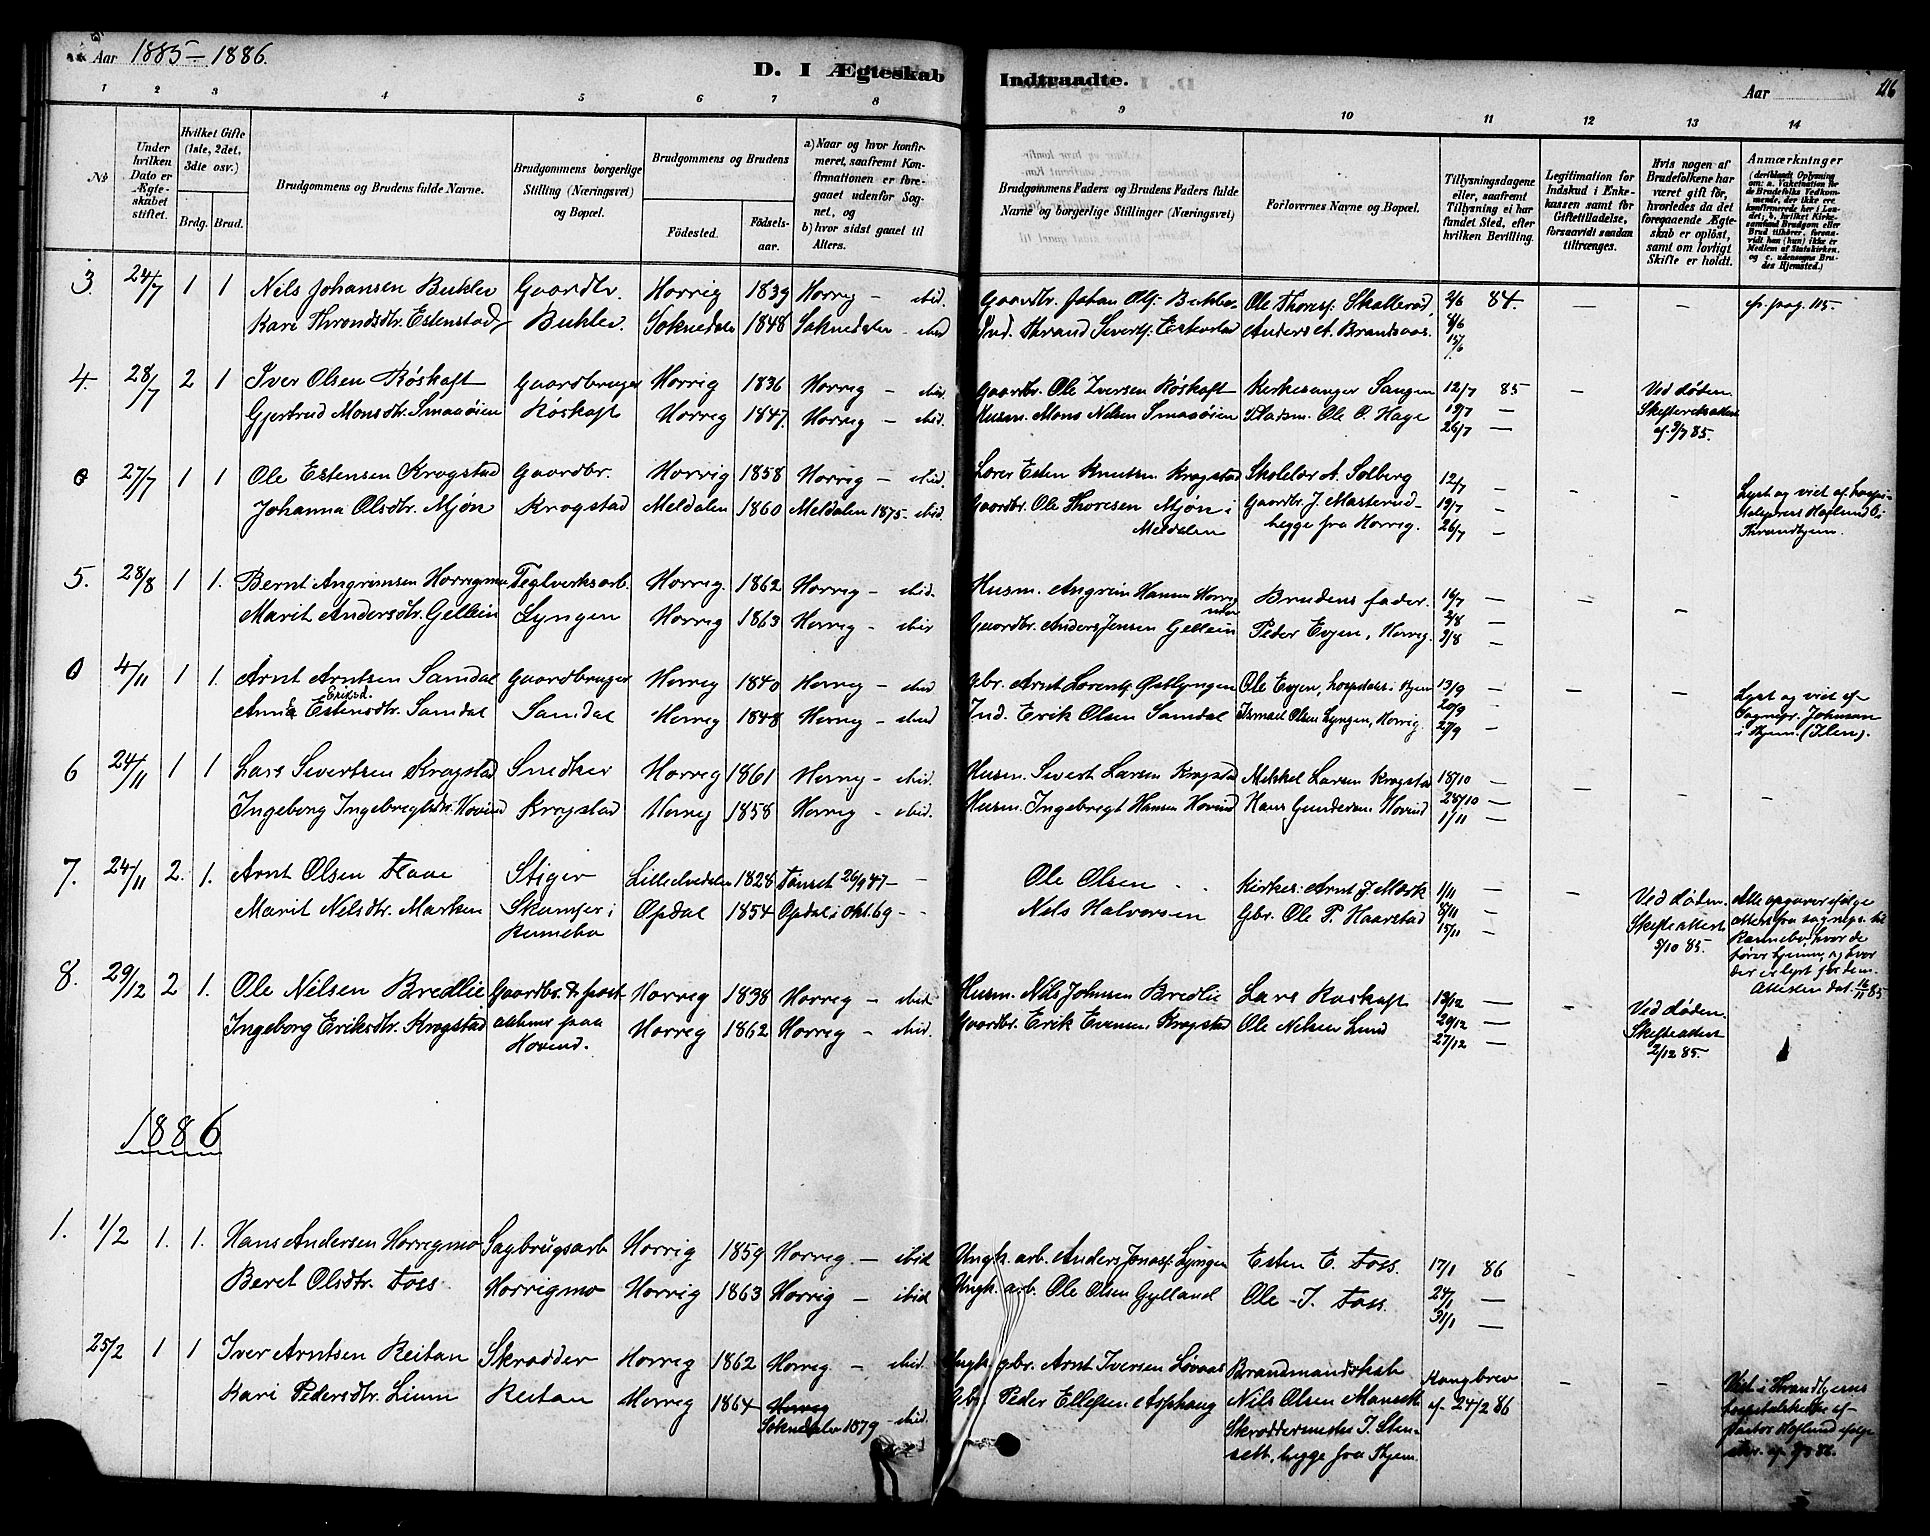 Aar 1885 - 1886.
D. I Ægteskab Indtraadte.
Aar 116
1 2 3 4 5 6 7 8 9 10 11 12 13 14
No
Under hvilken Dato er Ægteskabet stiftet.
Hvilket Gifte (1ste, 2det, 3die osv.)
Brdg. Brud.
Brudgommens og Brudens fulde Navne.
Brudgommens borgerlige Stilling (Næringsvei) og Bopæl.
Brudgommens og Brudens
Födested. Födselsaar.
a) Naar og hvor konfirmeret, saafremt Konfirmationen er foregaaet udenfor Sognet, og
b) hvor sidst gaaet til Alters.
Brudgommens Faders og Brudens Faders fulde Navne og borgerlige Stillinger (Næringsvei)
Forlovernes Navne og Bopæl.
Tillysningsdagene eller, saafremt Tillysning ei har fundet Sted, efter hvilken Bevilling.
Legitimation for Indskud i Enkekassen samt for Giftetilladelse, forsaavidt saadan tiltrænges.
Hvis nogen af Brudefolkene har været gift før, hvorledes da det foregaaende Ægteskab er opløst, samt om lovligt Skifte er holdt.
Anmærkninger (deriblandt Oplysning om: a. Vakcination for de Brudefolks Vedkommende, der ikke ere konfirmerede her i Landet; b. hvilket Kirkesamfund Brudgom eller Brud tilhører, forsaavidt han (hun) ikke er Medlem af Statskirken, og c. udensogns Brudes Hjemsted.)
3. 24/7 1 1 Nils Johansen Buklev Gaardbr. Horrig 1839 Horrig - ibid. Gaardbr. Johan Ols. Buklev Ole Thores. Skallerød, 2/6 84. - - cfr. pag. 115.
Kari Throndsdtr. Estenstad Buklev. Soknedalen 1848 Soknedalen - ibid Ind. Thrond Siverts. Estenstad Anders A. Brandsaas. 8/6
15/6
4. 28/7 2 1 Iver Olsen Röskaft Gaardbruger Horrig 1836 Horrig - ibid. Gaardbr. Ole Iversen Röskaft Kirkesanger Sangen 12/7 85 - Ved døden.
Gjertrud Monsdtr. Smaaöien Röskaft Horrig 1847. Horrig - ibid. Husm. Mons Nilsen Smaaöien Pladsm. Ole O. Hage 19/7 - Skifteretsattest
26/7 - af 3/7 85.
0 27/7 1 1 Ole Estensen Krogstad Gaardbr. Horrig 1858 Horrig - ibid. Lærer Esten Knutsen Krogstad Skolelær. A. Solberg 12/7 - - - Lyst og viet af hospi-
Johanna Olsdtr. Mjøn Krogstad Meldalen 1860 Meldalen 1875 - ibid. Gaardbr. Ole Thoresen Mjøn i Gaardbr. J. Masterud - 19/7 - talspræst Hoflund i
Meldalen begge fra Horrig. 26/7 - Throndhjem.
5. 28/8 1 1. Bernt Angrimsen Horrigmo Teglverksarb. Horrig. 1862 Horrig - ibid. Husm. Angrim Hansen Horrig Brudens fader. 16/7 - - -
Marit Andersdtr. Gellein Lyngen Horrig 1863 Horrig - ibid Gaardbr. Anders Jensen Gellein Peder Evjen, Horrig. 2/8 -
9/8 -
0 4/11 1 1. Arnt Arntsen Samdal Gaardbruger Horrig 1840 Horrig - ibid Gbr. Arnt Lorents. Østlyngen Ole Evjen, hospitalet i Thjem 13/9 - - - Lyst og viet af
Anna Estensdtr. Eriksd. Samdal Samdal Horrig 1848 Horrig - ibid Ind. Erik Olsen Samdal Ismael Olsen Lyngen, Horrig. 20/9 - Sognepr. Johnson
27/9 - i Thjem. (Ilen).
6 24/11 1 1 Lars Sivertsen Krogstad Snedker Horrig 1861 Horrig - ibid. Husm. Sivert Larsen Krogstad Mikkel Larsen Krogstad 18/10 - - -
Ingeborg Ingebrigtsdtr. Hovind Krogstad Horrig 1858 Horrig - ibid. Husm. Ingebrigt Hansen Hovind Hans Gundersen Hovind 25/10 -
1/11 -
7. 24/11 2. 1. Arnt Olsen Flaae Stiger Lilleelvedalen 1828 Tönset 26/9 47 - - Ole Olsen Kirkes. Arnt J. Mørk 1/11 - - Ved døden. Alle opgaver ifølge
Marit Nilsdtr. Marken Skamfer i Opdal 1854 Opdal i Okt. 69 - - Nils Halvorsen Gbr. Ole P. Haarstad 8/11 - Skifteattest attest fra sognepr. til
Rennebo 15/11 - 5/10 85. Rennebo, hvor de
hører hjemme, og hvor
der er lyst for dem.
Attesten dat. 16/11 85
8. 29/12 2 1. Ole Nilsen Bredlie Gaardbr. & post- Horrig 1838 Horrig - ibid Husm. Nils Johnsen Bredlie Lars Roskaft 13/12 - - Ved døden.
Ingeborg Eriksdtr. Krogstad aabner paa Horrig 1862 Horrig - ibid. Gaardbr. Erik Evensen Krogstad Ole Nilsen Lund 20/12 - Skifteattest
Hovind. 27/12 - 2/12 85.
1886
1. 1/2 1. 1. Hans Andersen Horrigmo Sagbrugsarb Horrig 1859 Horrig. - ibid Ungk. arb. Anders Jonas. Lyngen Esten E. Foss. 17/1 86 - -
Beret Olsdtr. Foss Horrigmo Horrig 1863 Horrig - ibid Ungk. arb. Ole Olsen Gylland Ole J. Foss. 24/1 -
31/1 -
25/2 1 1 Iver Arntsen Reitan Skrædder Horrig 1862 Horrig - ibid. Ungk. gbr. Arnt Iversen Løvaas Kongebrev - -
Kari Pedersdtr. Lium Reitan Horrig 1864 Horrig Gbr. Peder Ellefsen Asphaug Nils Olsen af 24/2 86 Viet i Throndhjems
Soknedalen 1879 - ibid. Skræddermester J. Sten- hospitalskirke af
sett, begge fra Thjem. Pastor Hoflund ifølge